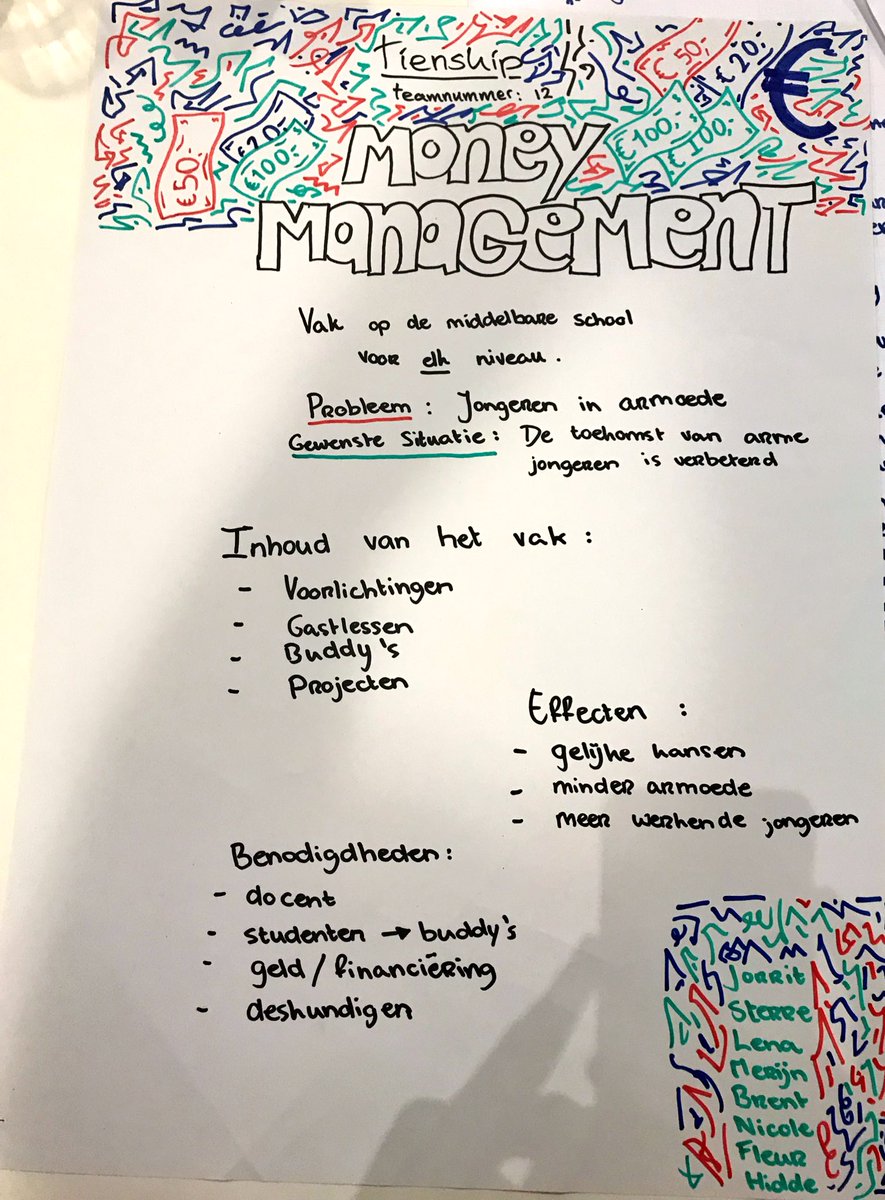 Tienskip
teamnummer: 12
€50,-
€20,-
€100,-
€50,-
€20,-
€100,-
€100,-
€
Money
Management
Vak op de middelbare school
voor elk niveau.
Probleem: Jongeren in armoede
Gewenste Situatie: De toekomst van arme
jongeren is verbeterd
Inhoud van het vak:
- Voorlichtingen
- Gastlessen
- Buddy's
- Projecten
Effecten:
- gelijke kansen
- minder armoede
- meer werkende jongeren
Benodigdheden:
- docent
- studenten → buddy's
- geld / financiëring
- deskundigen
Jorrit
Sterre
Lena
Merijn
Brent
Nicole
Fleur
Hidde